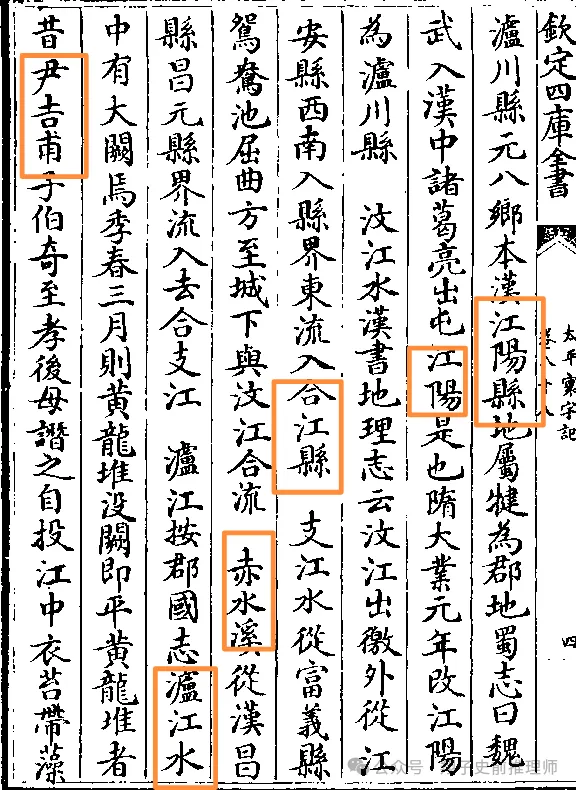 欽定四庫全書
太平寰宇記
卷八十八
四
瀘川縣元八鄉本漢江陽縣地屬犍為郡地蜀志曰魏
武入漢中諸葛亮出屯江陽是也隋大業元年改江陽
為瀘川縣 汶江水漢書地理志云汶江出徼外從江
安縣西南入縣界東流入合江縣 支江水從富義縣
鴛鴦池屈曲方至城下與汶江合流 赤水溪從漢昌
縣昌元縣界流入去合支江 瀘江按郡國志瀘江水
中有大闕焉季春三月則黄龍堆没闕即平黄龍堆者
昔尹吉甫子伯奇至孝後母譖之自投江中衣苔帶藻
公众号 子史前推理师